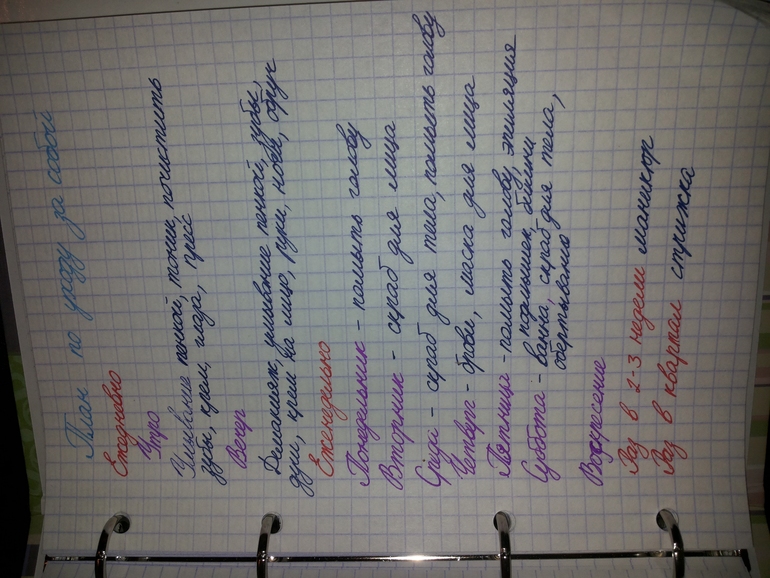 План по уходу за собой
Ежедневно
Утро
Умывание пенкой, тоник, почистить
зубы, крем, глаза, пресс
Вечер
Демакияж, умывание пенкой, зубы,
душ, крем на лицо, руки, ноги, обруч
Еженедельно
Понедельник - помыть голову
Вторник - скраб для лица
Среда - скраб для тела, помыть голову
Четверг - брови, маска для лица
Пятница - помыть голову, эпиляция
подмышек, бикини
Суббота - ванна, скраб для тела,
обертывание
Воскресение
Раз в 2-3 недели маникюр
Раз в квартал стрижка